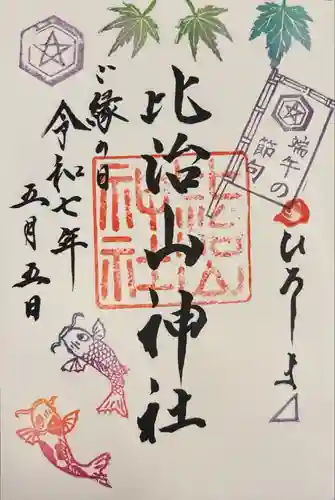 端午の
節句
ひろしま
比治山神社
比治山
神社
ご縁の日
令和七年
五月五日